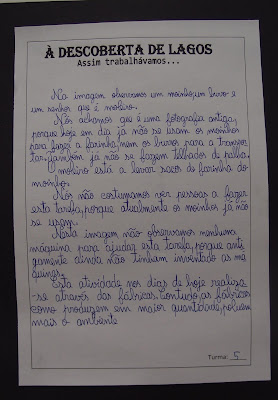 À DESCOBERTA DE LAGOS
Assim trabalhávamos...
Na imagem observamos um moinho, um burro e
um senhor que é moleiro.
Nós achamos que é uma fotografia antiga,
porque hoje em dia já não se usam os moinhos
para fazer a farinha, nem os burros para a transpor
tar. Também já não se fazem telhados de palha.
O moleiro está a levar sacos de farinha do
moinho.
Nós não costumamos ver pessoas a fazer
esta tarefa, porque atualmente os moinhos já não
se usam.
Nesta imagem não observamos nenhuma
máquina para ajudar esta tarefa, porque anti
gamente ainda não tinham inventado as má
quinas.
Esta atividade nos dias de hoje realiza
-se através das fábricas. Contudo, as fábricas
como produzem em maior quantidade, poluem
mais o ambiente
Turma: 5